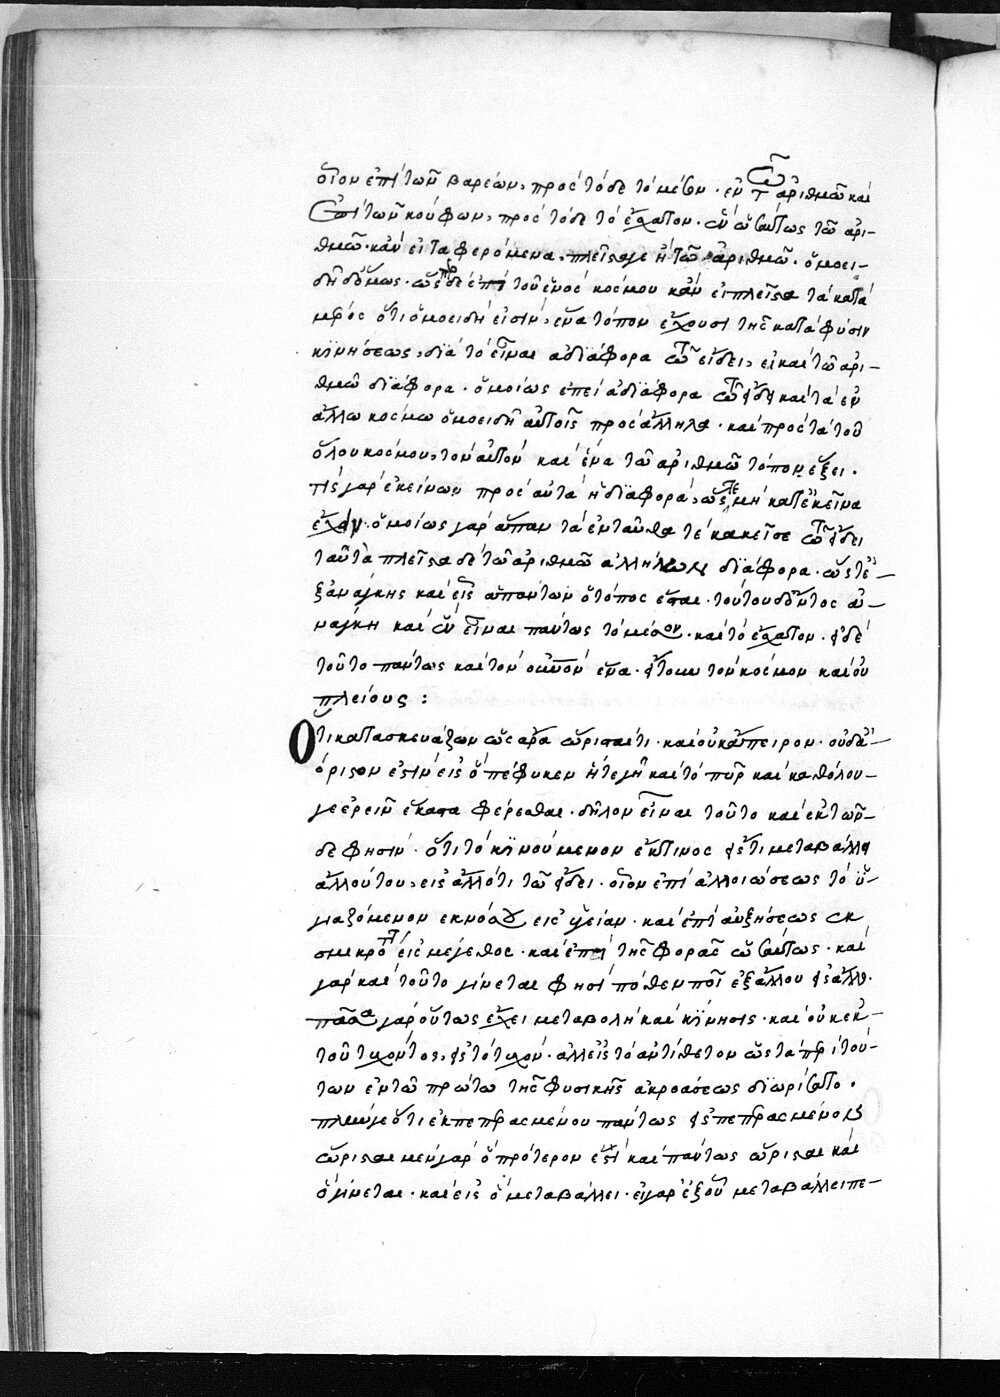 οἷον ἐπὶ τῶν βαρέων, πρὸς τόδε τὸ μέσον. ἓν τῶ ἀριθμῶ καὶ
ἐπὶ τῶν κούφων, πρὸς τόδε τὸ ἔσχατον. ἓν ὡσαύτως τῶ ἀρι-
θμῶ. κἂν εἰ τὰ φερόμενα, πλείονα ἢ τῶ ἀριθμῶ. ὁμοει-
δῆ δ' ὅμως. ὥσπερ δὲ ἐπὶ τοῦ ἑνὸς κόσμου κἂν εἰ πλεῖστα τὰ κατὰ
μέρος ὅτι ὁμοειδῆ εἰσὶν, ἕνα τόπον ἔχουσι τῆς κατὰ φύσιν
κινήσεως, διὰ τὸ εἶναι ἀδιάφορα τῶ εἴδει, εἰ καὶ τῶ ἀρι-
θμῶ διάφορα. ὁμοίως ἐπεὶ ἀδιάφορα τῶ εἴδει καὶ τὰ ἐν
ἄλλω κόσμω ὁμοειδῆ αὐτοῖς πρὸς ἄλληλα. καὶ πρὸς τὰ τοῦ
ὅλου κόσμου, τὸν αὐτὸν καὶ ἕνα τῶ ἀριθμῶ τόπον ἕξει.
τίς γὰρ ἐκείνων πρὸς αὐτὰ ἡ διαφορά, ὥστε μὴ κατ' ἐκεῖνα
ἔχειν. ὁμοίως γὰρ ἅπαντα ἐνταῦθα τὲ κἀκεῖσε τῶ εἴδει
ταῦτα πλεῖστα δὲ τῶ ἀριθμῶ ἀλλήλων διάφορα. ὥστε ἐ-
ξανάγκης καὶ εἷς ἁπάντων ὁ τόπος ἔσται. τούτου δ' ὄντος ἀ-
νάγκη καὶ ἓν εἶναι πάντως τὸ μέσον. καὶ τὸ ἔσχατον. εἰ δὲ
τοῦτο πάντως καὶ τὸν οὐρανὸν ἕνα. εἴτουν τὸν κόσμον καὶ οὐ
πλείους :
Ὅτι κατασκευάζων ὡς ἄρα ὥρισταί τι. καὶ οὐκ ἄπειρον. οὐδ' ἀ-
όριστον ἐστὶν εἰς ὃ πέφυκεν ἥτε γῆ καὶ τὸ πῦρ καὶ καθόλου
γε ἐρεῖν ἕκαστα φέρεσθαι. δῆλον εἶναι τοῦτο καὶ ἐκ τῶν-
δε φησὶν. ὅτι τὸ κινούμενον ἔκ τινος εἴς τι μεταβάλλει
ἄλλου του, εἰς ἄλλό τι τῶ εἴδει. οἷον ἐπὶ ἀλλοιώσεως τὸ ὑ-
γιαζόμενον ἐκ νόσου εἰς ὑγείαν. καὶ ἐπὶ αὐξήσεως ἐκ
σμικροῦ εἰς μέγεθος. καὶ ἐπὶ τῆς φορᾶς ὡσαύτως. καὶ
γὰρ καὶ τοῦτο γίνεται φησὶ πόθεν ποῖ ἐξ ἄλλου εἰς ἄλλο.
πᾶσα γὰρ οὕτως ἔχει μεταβολὴ καὶ κίνησις. καὶ οὐκ ἐκ
τοῦ τυχόντος, εἰς τὸ τυχὸν. ἀλλ' εἰς τὸ ἀντίθετον ὥς τὰ περὶ τού-
των ἐν τῶ πρώτω τῆς φυσικῆς ἀκροάσεως διωρίσατο.
πλήν γε ὅτι ἐκ πεπερασμένου πάντως εἰς πεπερασμένον
ὥρισται μὲν γὰρ ὃ πρότερον ἐστὶ καὶ πάντως ὥρισται καὶ
ὃ γίνεται. καὶ εἰς ὃ μεταβάλλει. εἰ γὰρ ἐξ οὗ μεταβάλλει πε-